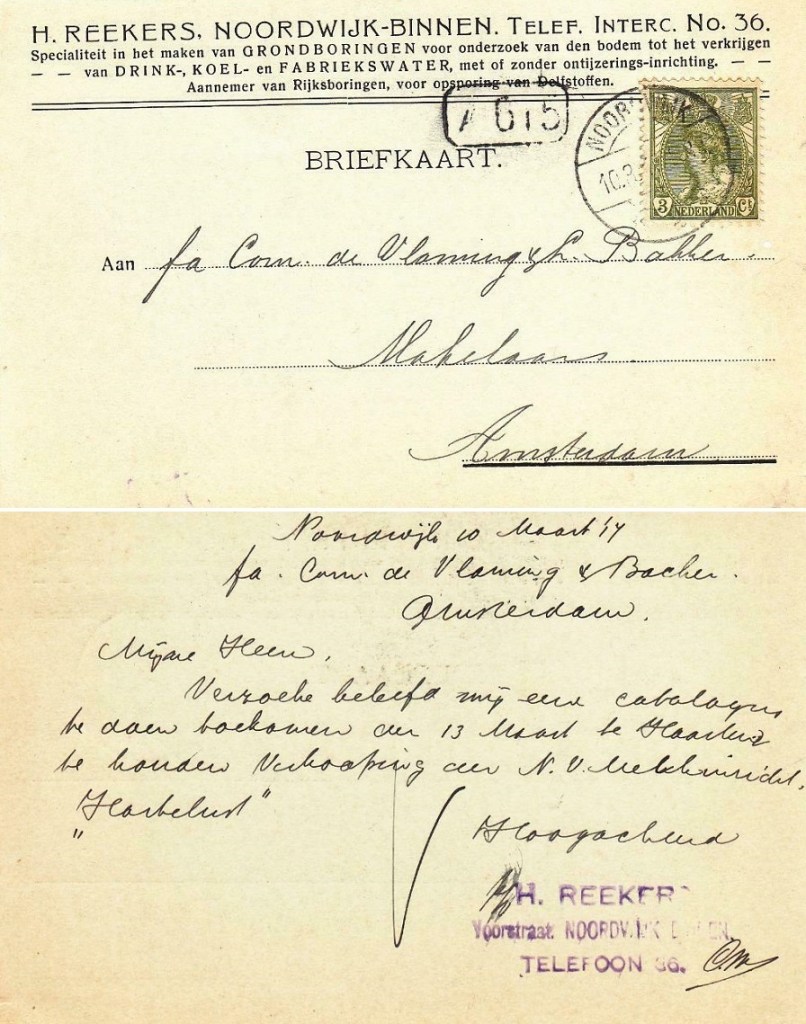 H. REEKERS, NOORDWIJK-BINNEN. TELEF. INTERC. No. 36.
Specialiteit in het maken van GRONDBORINGEN voor onderzoek van den bodem tot het verkrijgen
— — van DRINK-, KOEL- en FABRIEKSWATER, met of zonder ontijzerings-inrichting. — —
Aannemer van Rijksboringen, voor opsporing van Delfstoffen.
A 615
NOORDWIJK
10.3
3 NEDERLAND Ct
BRIEFKAART.
Aan fa Corn. de Vlaming & Bakker.
Makelaars
Amsterdam
Noordwijk 10 Maart '17
fa. Corn. de Vlaming & Backer.
Amsterdam.
Mijne Heeren,
Verzoeke beleefd mij een catalogus
te doen toekomen der 13 Maart te Haarlem
te houden Verkooping der N.V. Melkinricht.
"Hartelust"
Hoogachtend
H. REEKERS
Voorstraat. NOORDWIJK BINNEN.
TELEFOON 36.